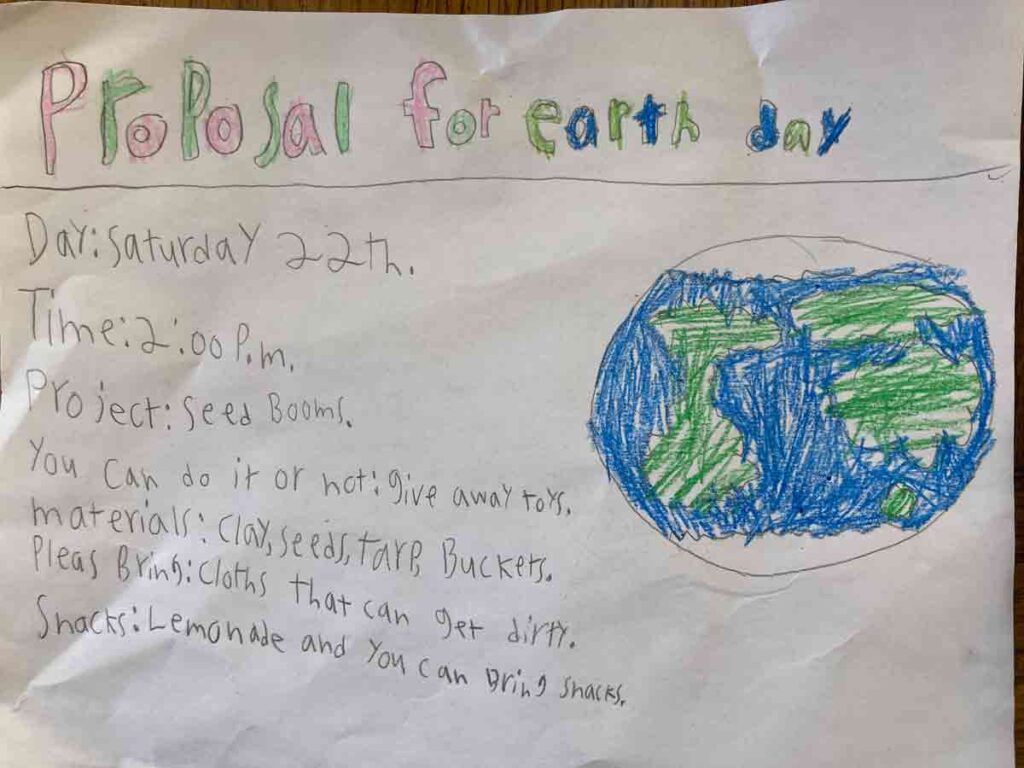 Proposal for earth day
Day: Saturday 22th.
Time: 2:00 P.m.
Project: Seed Booms.
You can do it or not: give away toys.
materials: Clay, seeds, tarp, Buckets.
Pleas Bring: Cloths that can get dirty.
Snacks: Lemonade and you can Bring snacks.